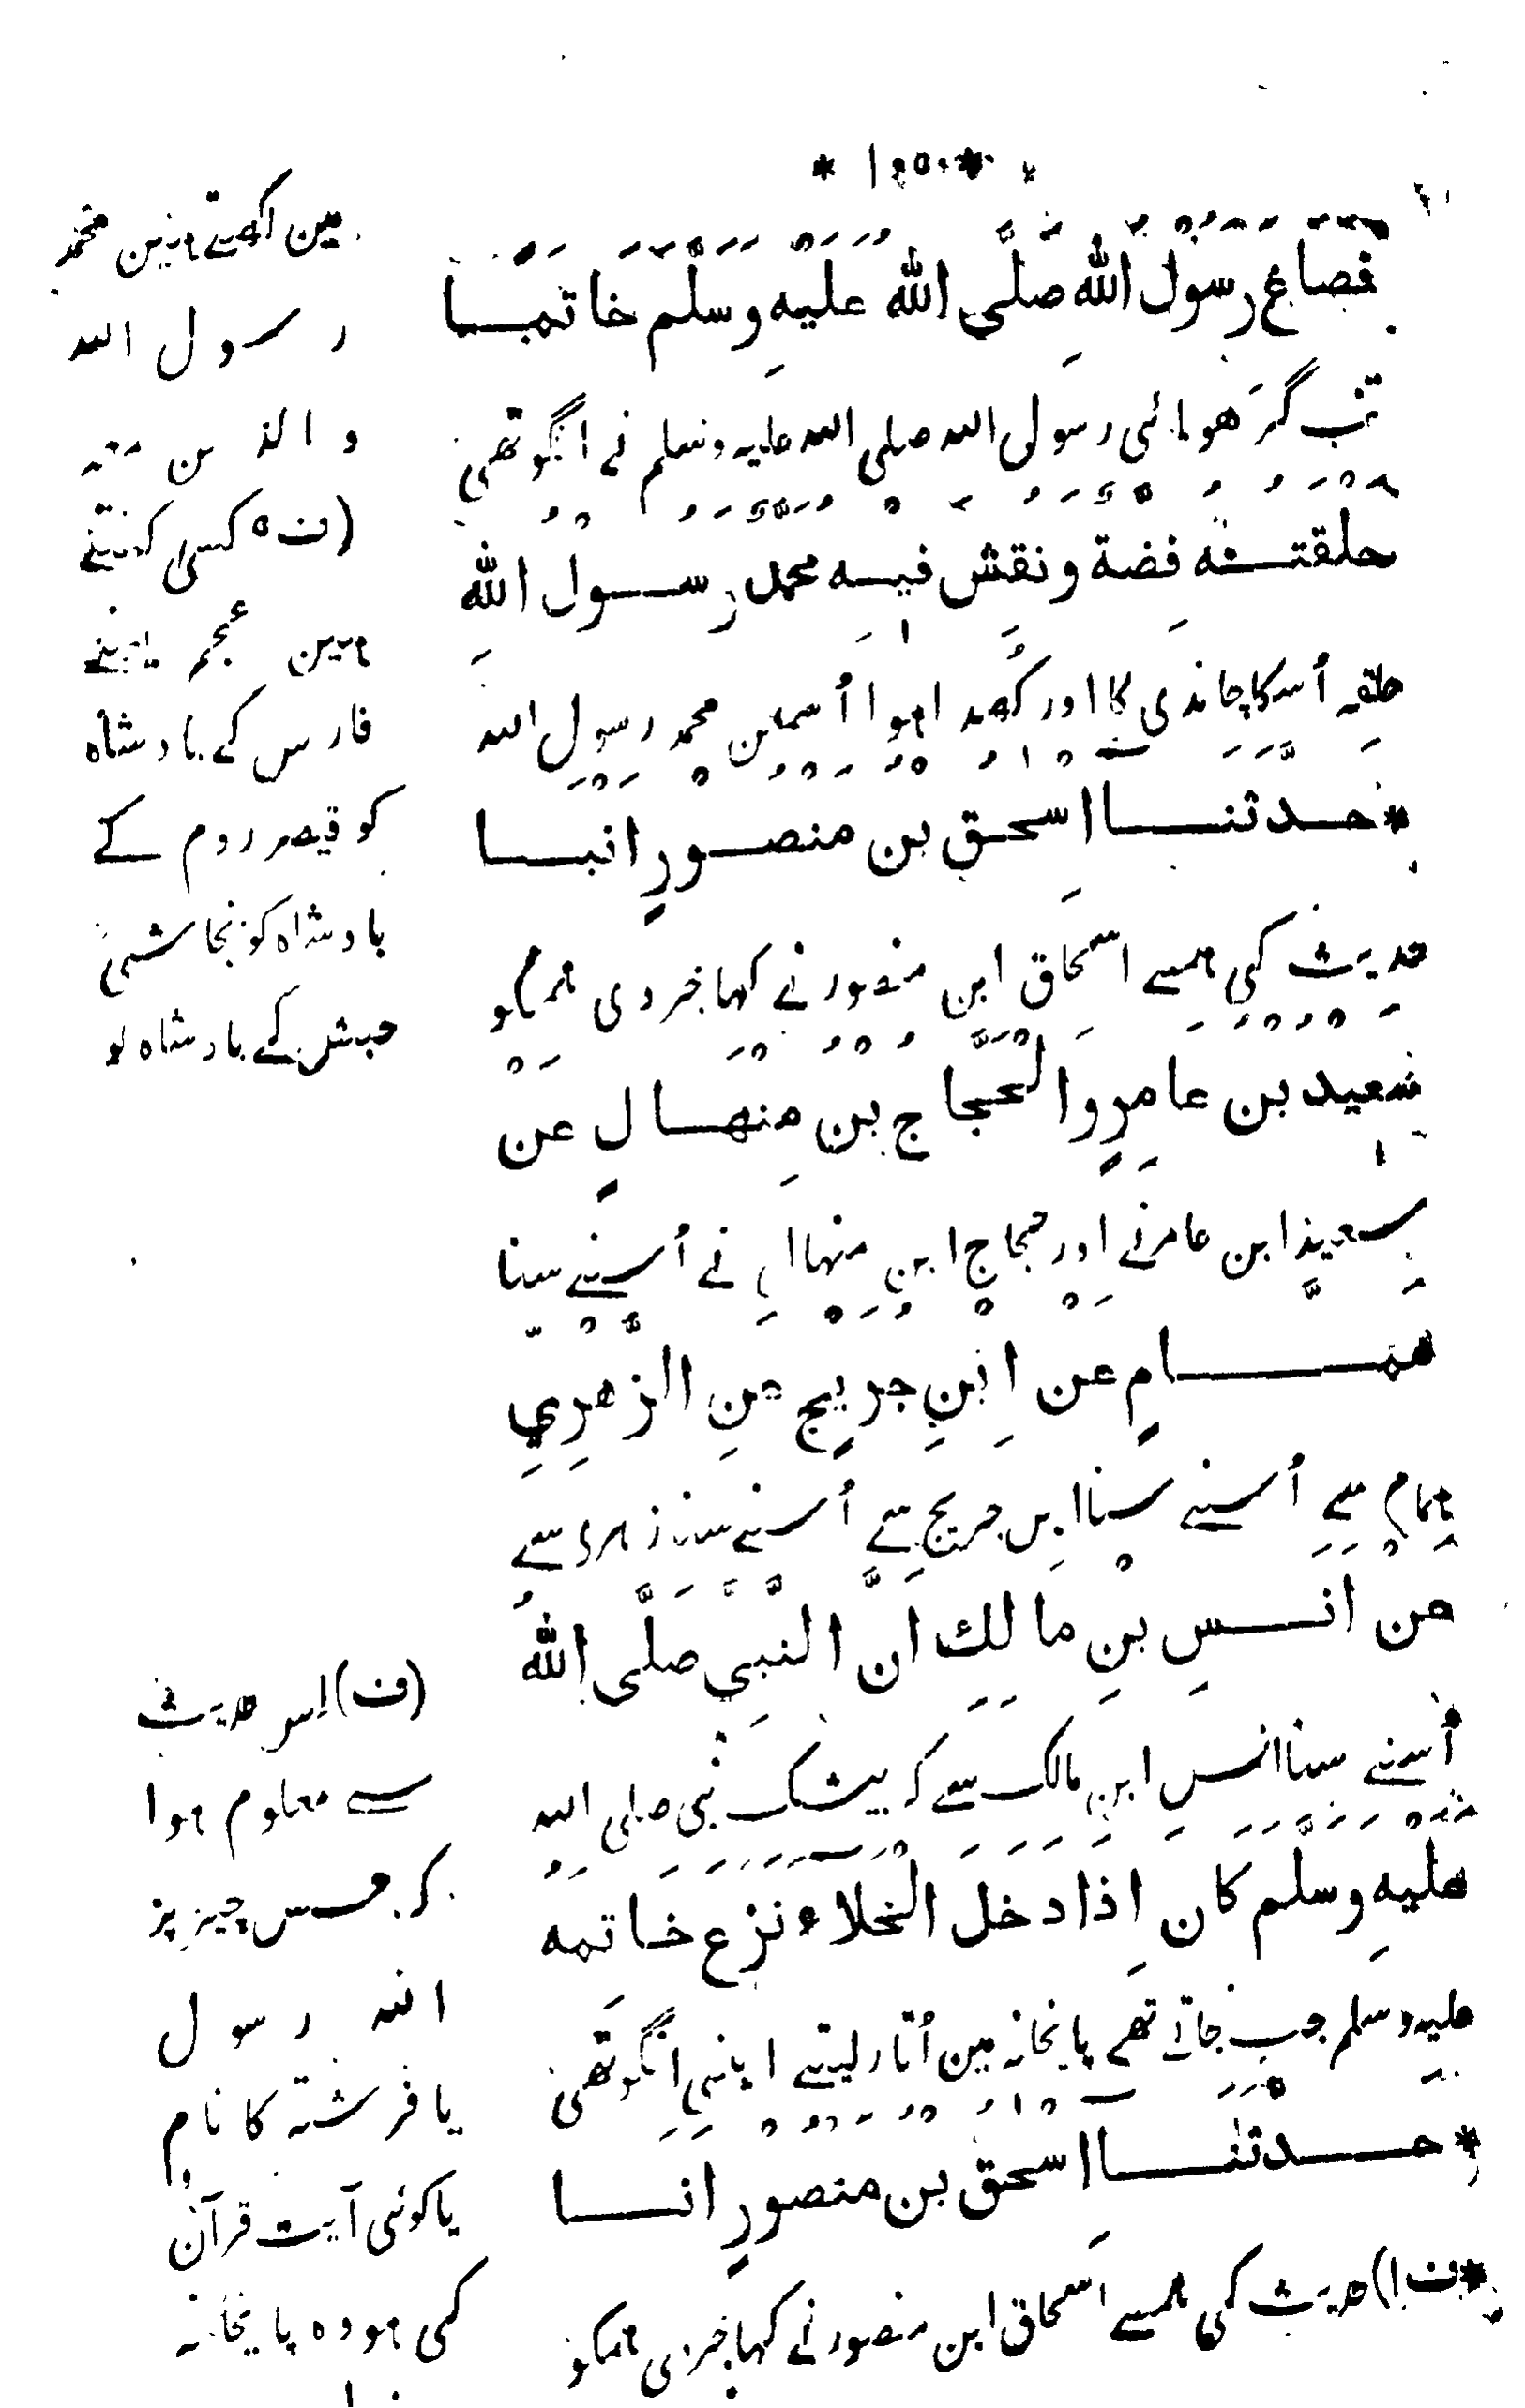 * ١٥٠ *
فَصَاغَ رَسُولُ اللهِ صَلَّى اللهُ عَلَيْهِ وَسَلَّمَ خَاتَمًا
تب گھڑوائی رسول الله صلی الله علیه وسلم نے انگوٹھی
حلقته فضة ونقش فيه محمد رسول الله
حلقه اُسکا چاندی کا اور کُھدا ہوا اُسمین محمد رسول الله
* حدثنا اسحق بن منصورٍ انبا
حدیث کی ہمسے اسحاق ابن منصور نے کہا خبر دی ہمکو
سعيد بن عامرٍ والحجاج بن منهالٍ عن
سعید ابن عامر نے اور حجاج ابن منہال نے اُسنے سنا
همامٍ عن ابنِ جريجٍ عنِ الزهرِيِ
ہمام سے اُسنے سنا ابن جریج سے اُسنے سنا زہری سے
عن انسِ بنِ مالِكِ انَّ النبِيَ صلَّى اللهُ
اُسنے سنا انس ابن مالک سے کہ بیشک نبی صلی الله
عليهِ وسلم كان اِذا دخل الخلاء نزع خاتمه
علیه وسلم جب جاتے تھے پایخانہ مین اُتار لیتے اپنی انگوٹھی
* حدثنا اسحق بن منصورٍ انا
* ف ا) حدیث کی ہمسے اسحاق ابن منصور نے کہا خبر دی ہمکو
مین لکھتے ہین محمد
رسول الله
(ف ٥ کسری کہتے
ہین عجم یعنے
فارس کے بادشاہ
کو قیصر روم کے
بادشاہ کو نجاشی
حبش کے بادشاہ کو
(ف) اِس حدیث
سے معلوم ہوا
کہ جس چیز پر
الله رسول
یا فرشتہ کا نام
یا کوئی آیت قرآن
کی ہو وہ پایخانہ